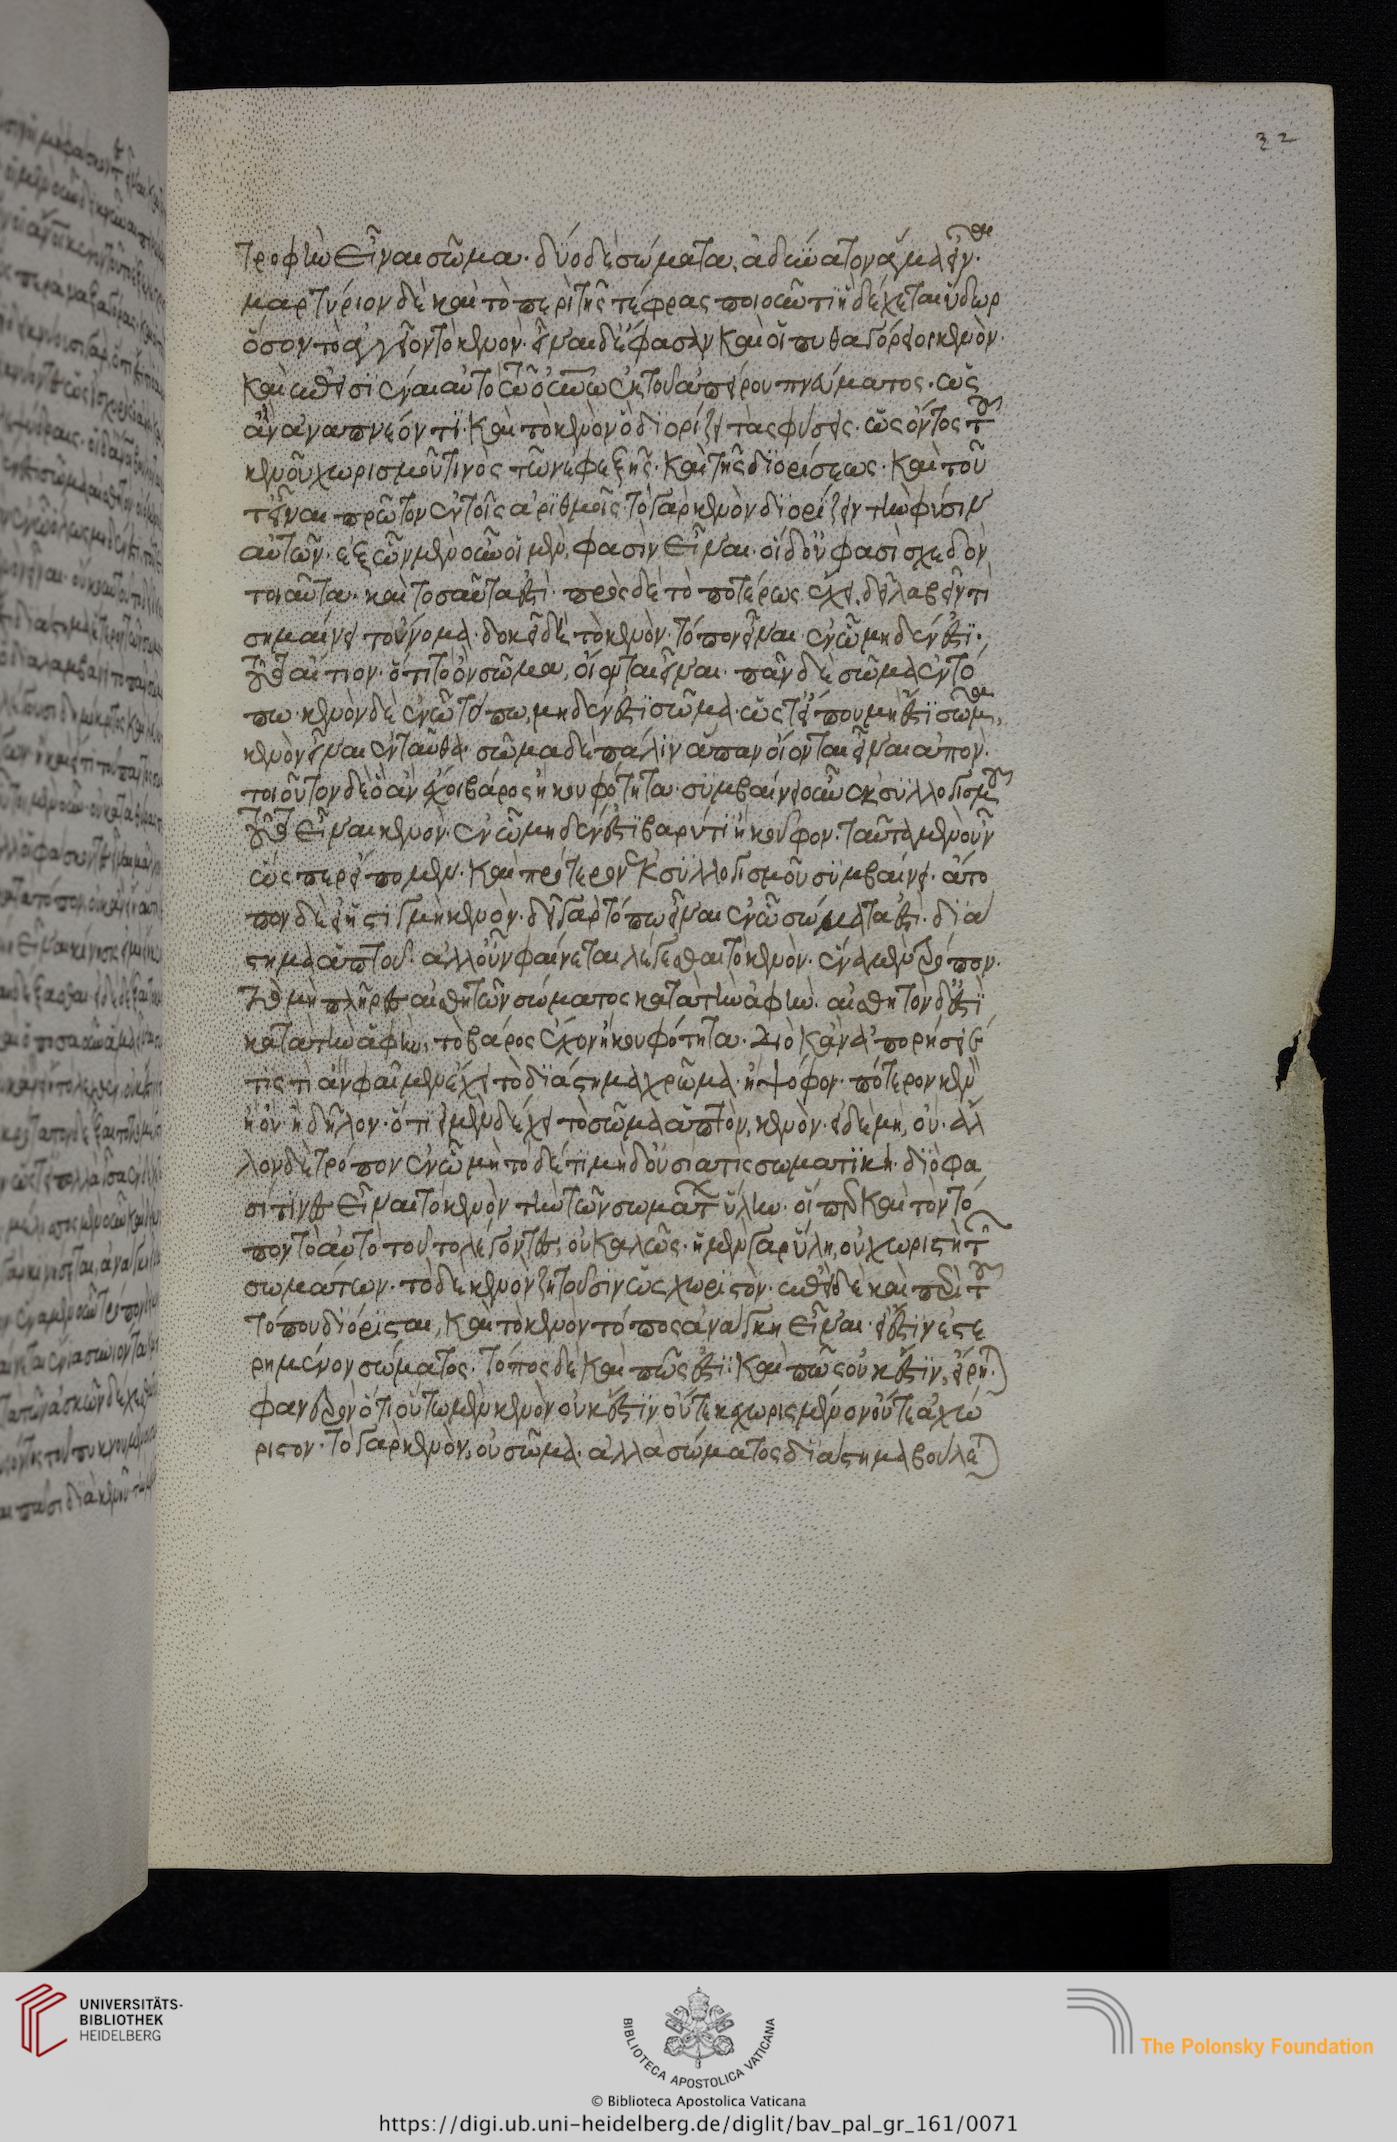 τροφὴν εἶναι σῶμα· δύο δὲ σώματα, ἀδύνατον ἅμα εἶναι·
μαρτύριον δὲ καὶ τὸ περὶ τῆς τέφρας ποιοῦντι ἣ δέχεται ὕδωρ
ὅσον τὸ ἀγγεῖον τὸ κενὸν· εἶναι δ' ἔφασαν καὶ οἱ πυθαγόρειοι κενὸν·
καὶ ἐπεισϊέναι αὐτὸ τῶ οὐρανῶ ἐκ τοῦ ἀπείρου πνεύματος· ὡς
ἂν ἀναπνέοντϊ· καὶ τὸ κενὸν ὃ διορίζει τὰς φύσεις· ὡς ὄντος τοῦ
κενοῦ χωρισμοῦ τινὸς τῶν ἐφεξῆς· καὶ τῆς διορίσεως· καὶ τοῦ
τ' εἶναι πρῶτον ἐν τοῖς ἀριθμοῖς· τὸ γὰρ κενὸν διορίζειν τὴν φύσιν
αὐτῶν· ἐξ ὧν μὲν οὖν οἱ μέν, φασὶν εἶναι· οἱ δ' οὔ φασὶ σχεδὸν
τοιαῦτα· καὶ τοσαῦτα ἐστὶ· πρὸς δὲ τὸ ποτέρως ἔχει, δεῖ λαβεῖν τί
σημαίνει τοὔνομα· δοκεῖ δὲ τὸ κενὸν· τόπον εἶναι ἐν ὧ μηδέν ἐστϊ·
τούτου δ' αἴτιον· ὅτι τὸ ὂν σῶμα, οἴονται εἶναι· πᾶν δὲ σῶμα ἐν τό
πω· κενὸν δὲ ἐν ὧ τόπω, μηδέν ἐστϊ σῶμα· ὥστ' εἴ που μή ἐστϊ σῶμα,
κενὸν εἶναι ἐνταῦθα· σῶμα δὲ πάλιν ἅπαν οἴονται εἶναι ἁπτόν·
τοιοῦτον δὲ ὃ ἂν ἔχοι βάρος ἢ κουφότητα· συμβαίνει οὖν ἐκ συλλογισμοῦ
τοῦτο εἶναι κενὸν· ἐν ὧ μηδέν ἐστι βαρύ τι ἢ κοῦφον· ταῦτα μὲν οὖν
ὥσπερ εἴπομεν· καὶ πρότερον ἐκ συλλογισμοῦ συμβαίνει· ἄτο
πον δὲ εἰ ἡ στιγμὴ κενὸν· δεῖ γὰρ τόπω εἶναι ἐν ὧ σώματα ἐστὶ· διά
στημα ἁπτοῦ· ἀλλ' οὖν φαίνεται λέγεσθαι τὸ κενὸν· ἕνα μὲν τρόπον·
τὸ μὴ πλῆρες αἰσθητοῦ σώματος κατὰ τὴν ἁφὴν· αἰσθητὸν δ' ἐστὶ
κατὰ τὴν ἁφὴν, τὸ βάρος ἔχον ἢ κουφότητα· διὸ κἂν ἀπορήσειέ
τις τί ἂν φαῖμεν εἰ ἔχει τὸ διάστημα χρῶμα· ἢ ψόφον· πότερον κενὸν
ἢ οὔ· ἢ δῆλον· ὅτι εἰ μὲν δέχει τὸ σῶμα ἁπτὸν, κενὸν· εἰ δὲ μὴ, οὐ· ἄλ
λον δὲ τρόπον ἐν ὧ μὴ τόδέ τι μὴδ' οὐσία τις σωματϊκή· διό φα
σί τινες εἶναι τὸ κενὸν τὴν τῶν σωμάτων ὕλην· οἵπερ καὶ τὸν τό
πον τὸ αὐτὸ τοῦτο λέγοντες, οὐ καλῶς· ἡ μὲν γὰρ ὕλη, οὐ χωριστὴ τῶν
σωμάτων· τὸ δὲ κενὸν ζητοῦσιν ὡς χωριστὸν· ἐπεὶ δὲ καὶ περὶ τοῦ
τόπου διόρισται, καὶ τὸ κενὸν τόπος ἀνάγκη εἶναι· εἰ ἔστιν ἐστε
ρημένον σώματος· τόπος δὲ καὶ πῶς ἐστϊ· καὶ πῶς οὐκ ἔστϊν, εἴρηται·
φανερὸν ὅτι οὕτω μὲν κενὸν οὐκ ἔστϊν οὔτε κεχωρισμένον οὔτε ἀχώ
ριστον· τὸ γὰρ κενὸν, οὐ σῶμα· ἀλλὰ σώματος διάστημα βούλεται
32
UNIVERSITÄTS-
BIBLIOTHEK
HEIDELBERG
BIBLIOTECA APOSTOLICA VATICANA
© Biblioteca Apostolica Vaticana
The Polonsky Foundation
https://digi.ub.uni-heidelberg.de/diglit/bav_pal_gr_161/0071